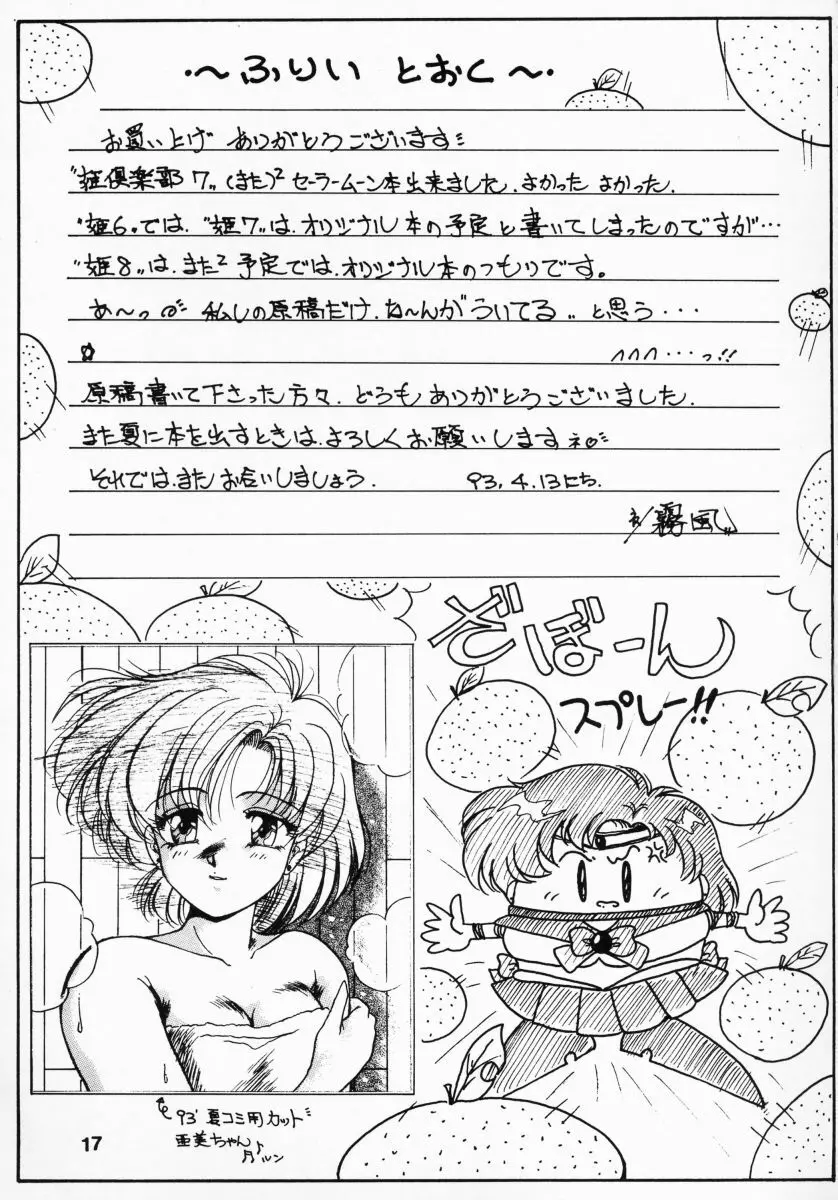 ・～ふりい とおく～・
お買い上げ ありがとうございます
"姫倶楽部7"(また)² セーラームーン本出来ました. よかった よかった.
"姫6"では. "姫7"は. オリジナル本の予定と書いてしまったのですが…
"姫8"は. また² 予定では. オリジナル本のつもりです。
あ～っ 私しの原稿だけ. ね～んがういてる" と思う・・・
ヘヘヘ・・・っ!!
原稿書いて下さった方々. どうもありがとうございました.
また夏に本を出すときは. よろしくお願いしますネ
それでは. また お会いしましょう. 93. 4. 13にち.
霧風
ざぼーん
スプレー!!
93' 夏コミ用カット
亜美ちゃん♪
17